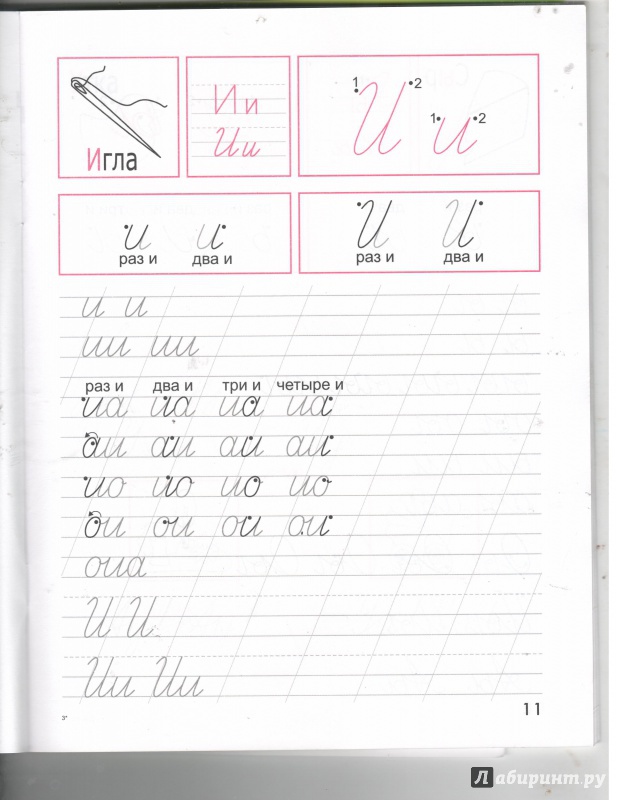 Игла
И и
И и
1 2 И 1 2 и
и и
раз и два и
И И
раз и два и
и и
ии ии
раз и два и три и четыре и
иа иа иа иа
аи аи аи аи
ио ио ио ио
ои ои ои ои
оиа
И И
Ии Ии
11
3*
Лабиринт.ру